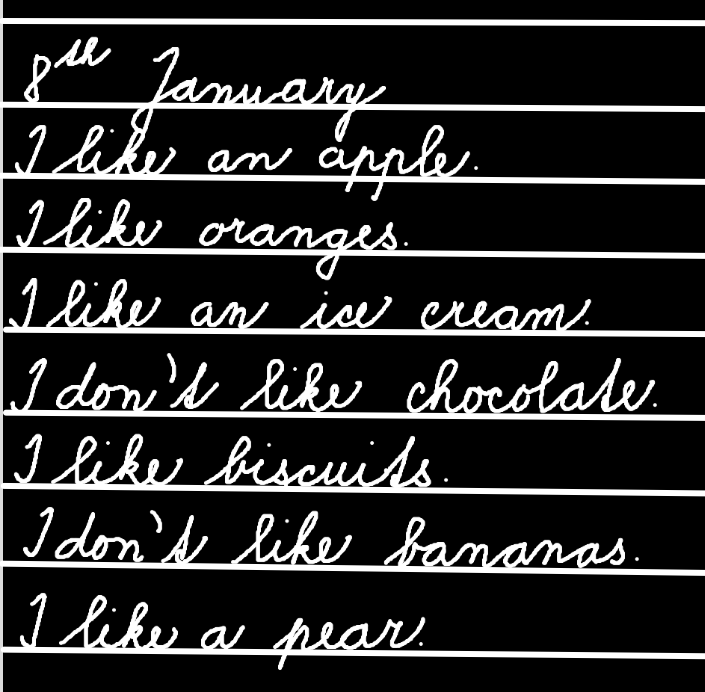 8th January
I like an apple.
I like oranges.
I like an ice cream.
I don't like chocolate.
I like biscuits.
I don't like bananas.
I like a pear.